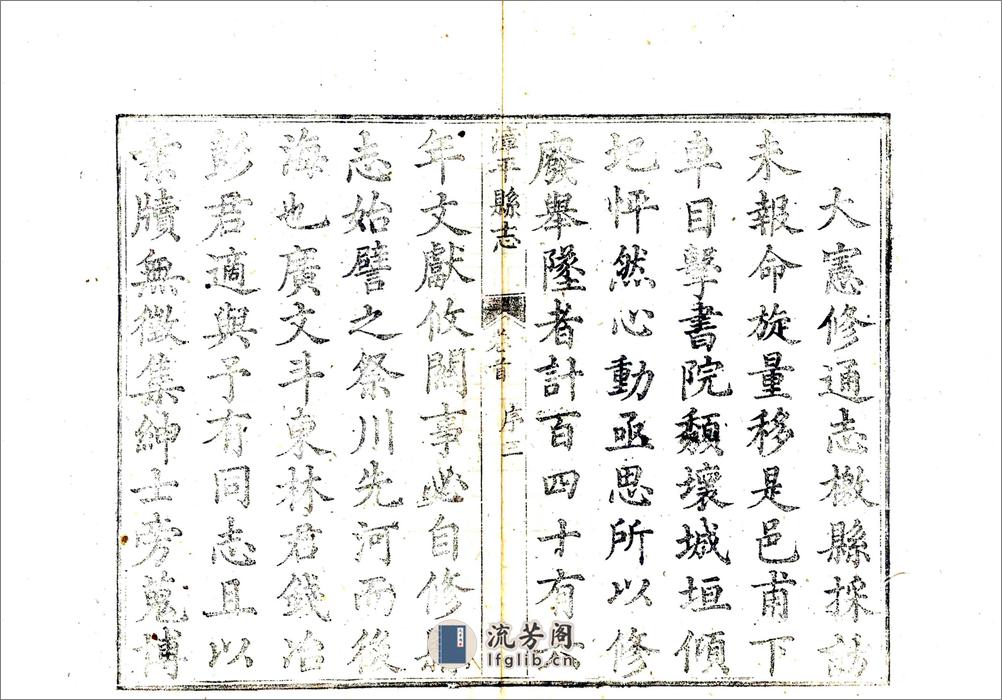 大憲修通志檄縣採訪
未報命旋量移是邑甫下
車目擊書院頹壞城垣傾
圮怦然心動亟思所以修
廢舉墜者計百四十有
漳平縣志
卷首
序三
年文獻攸關事必自修
志始譬之祭川先河而後
海也廣文斗東林君錢冶
彭君適與予有同志且以
案牘無徵集紳士旁蒐博
流芳阁
lfglib.cn